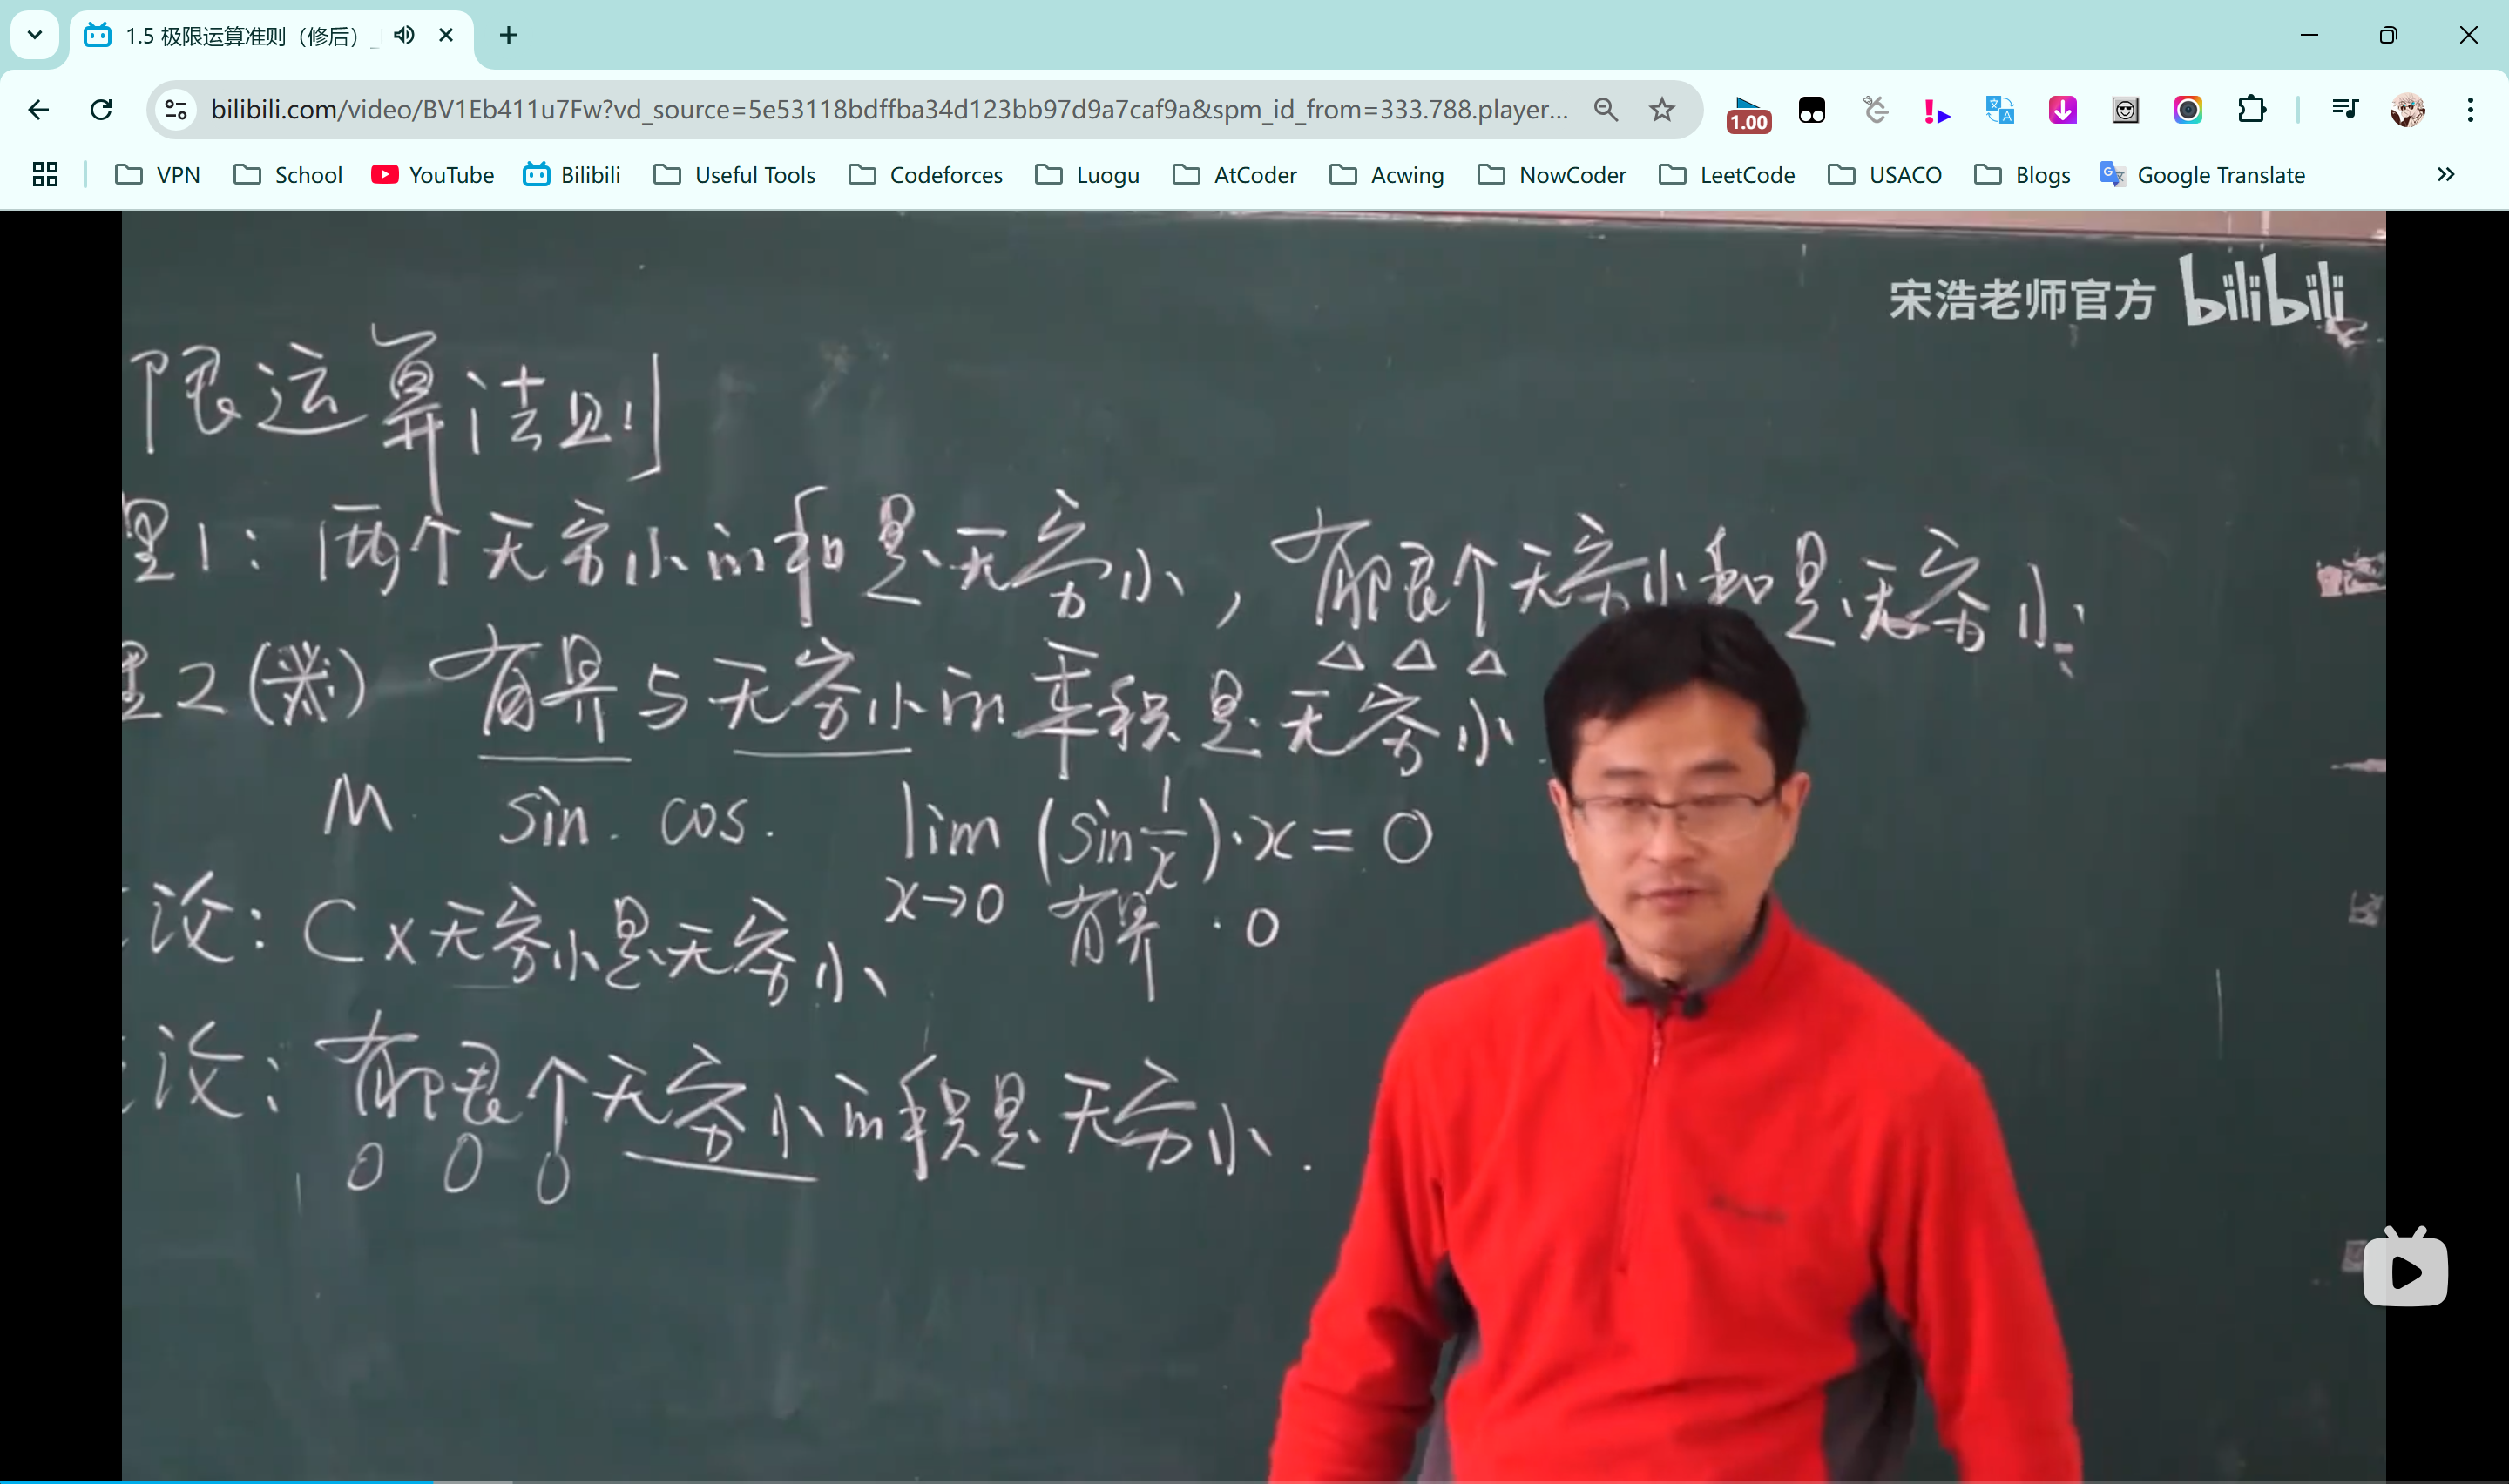 1.5 极限运算准则（修后）_
bilibili.com/video/BV1Eb411u7Fw?vd_source=5e53118bdffba34d123bb97d9a7caf9a&spm_id_from=333.788.player...
1.00
VPN School YouTube Bilibili Useful Tools Codeforces Luogu AtCoder Acwing NowCoder LeetCode USACO Blogs Google Translate
宋浩老师官方 bilibili
限运算法则
理1：两个无穷小的和是无穷小，有限个无穷小和是无穷小
理2(※) 有界与无穷小的乘积是无穷小
M. sin. cos. lim (sin 1/x)·x = 0
x→0 有界 · 0
论：C×无穷小是无穷小
论：有限个无穷小的积是无穷小.
0 0 0